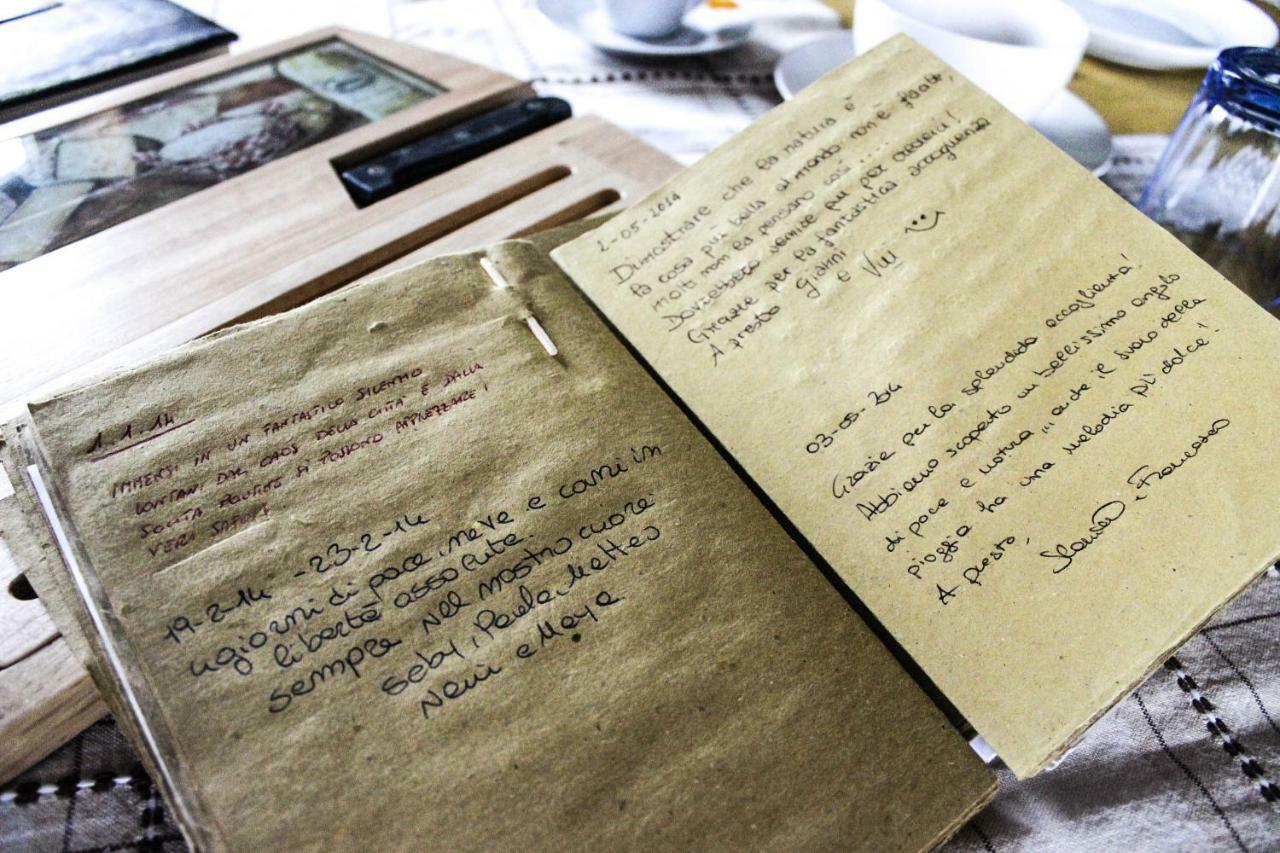 1.1.14
IMMERSI IN UN FANTASTICO SILENZIO
LONTANI DAL CAOS DELLA CITTA' E DALLA
SOLITA ROUTINE SI POSSONO APPREZZARE I
VERI SAPORI
19-2-14 -23-2-14
4 giorni di pace, neve e cani in
libertà assoluta.
sempre nel nostro cuore
seby, Paola, Matteo
Neni e Maya
2-05-2014
Dimostrare che la natura è
la cosa più bella al mondo non è facile,
molti non la pensano così .....
Dovrebbero venire qui per crederci!
Grazie per la fantastica accoglienza
A presto Gianni e
03-05-2014
Grazie per la splendida accoglienza!
Abbiamo scoperto un bellissimo angolo
di pace e natura ... anche il suono della
pioggia ha una melodia più dolce!
A presto,
e Francesco